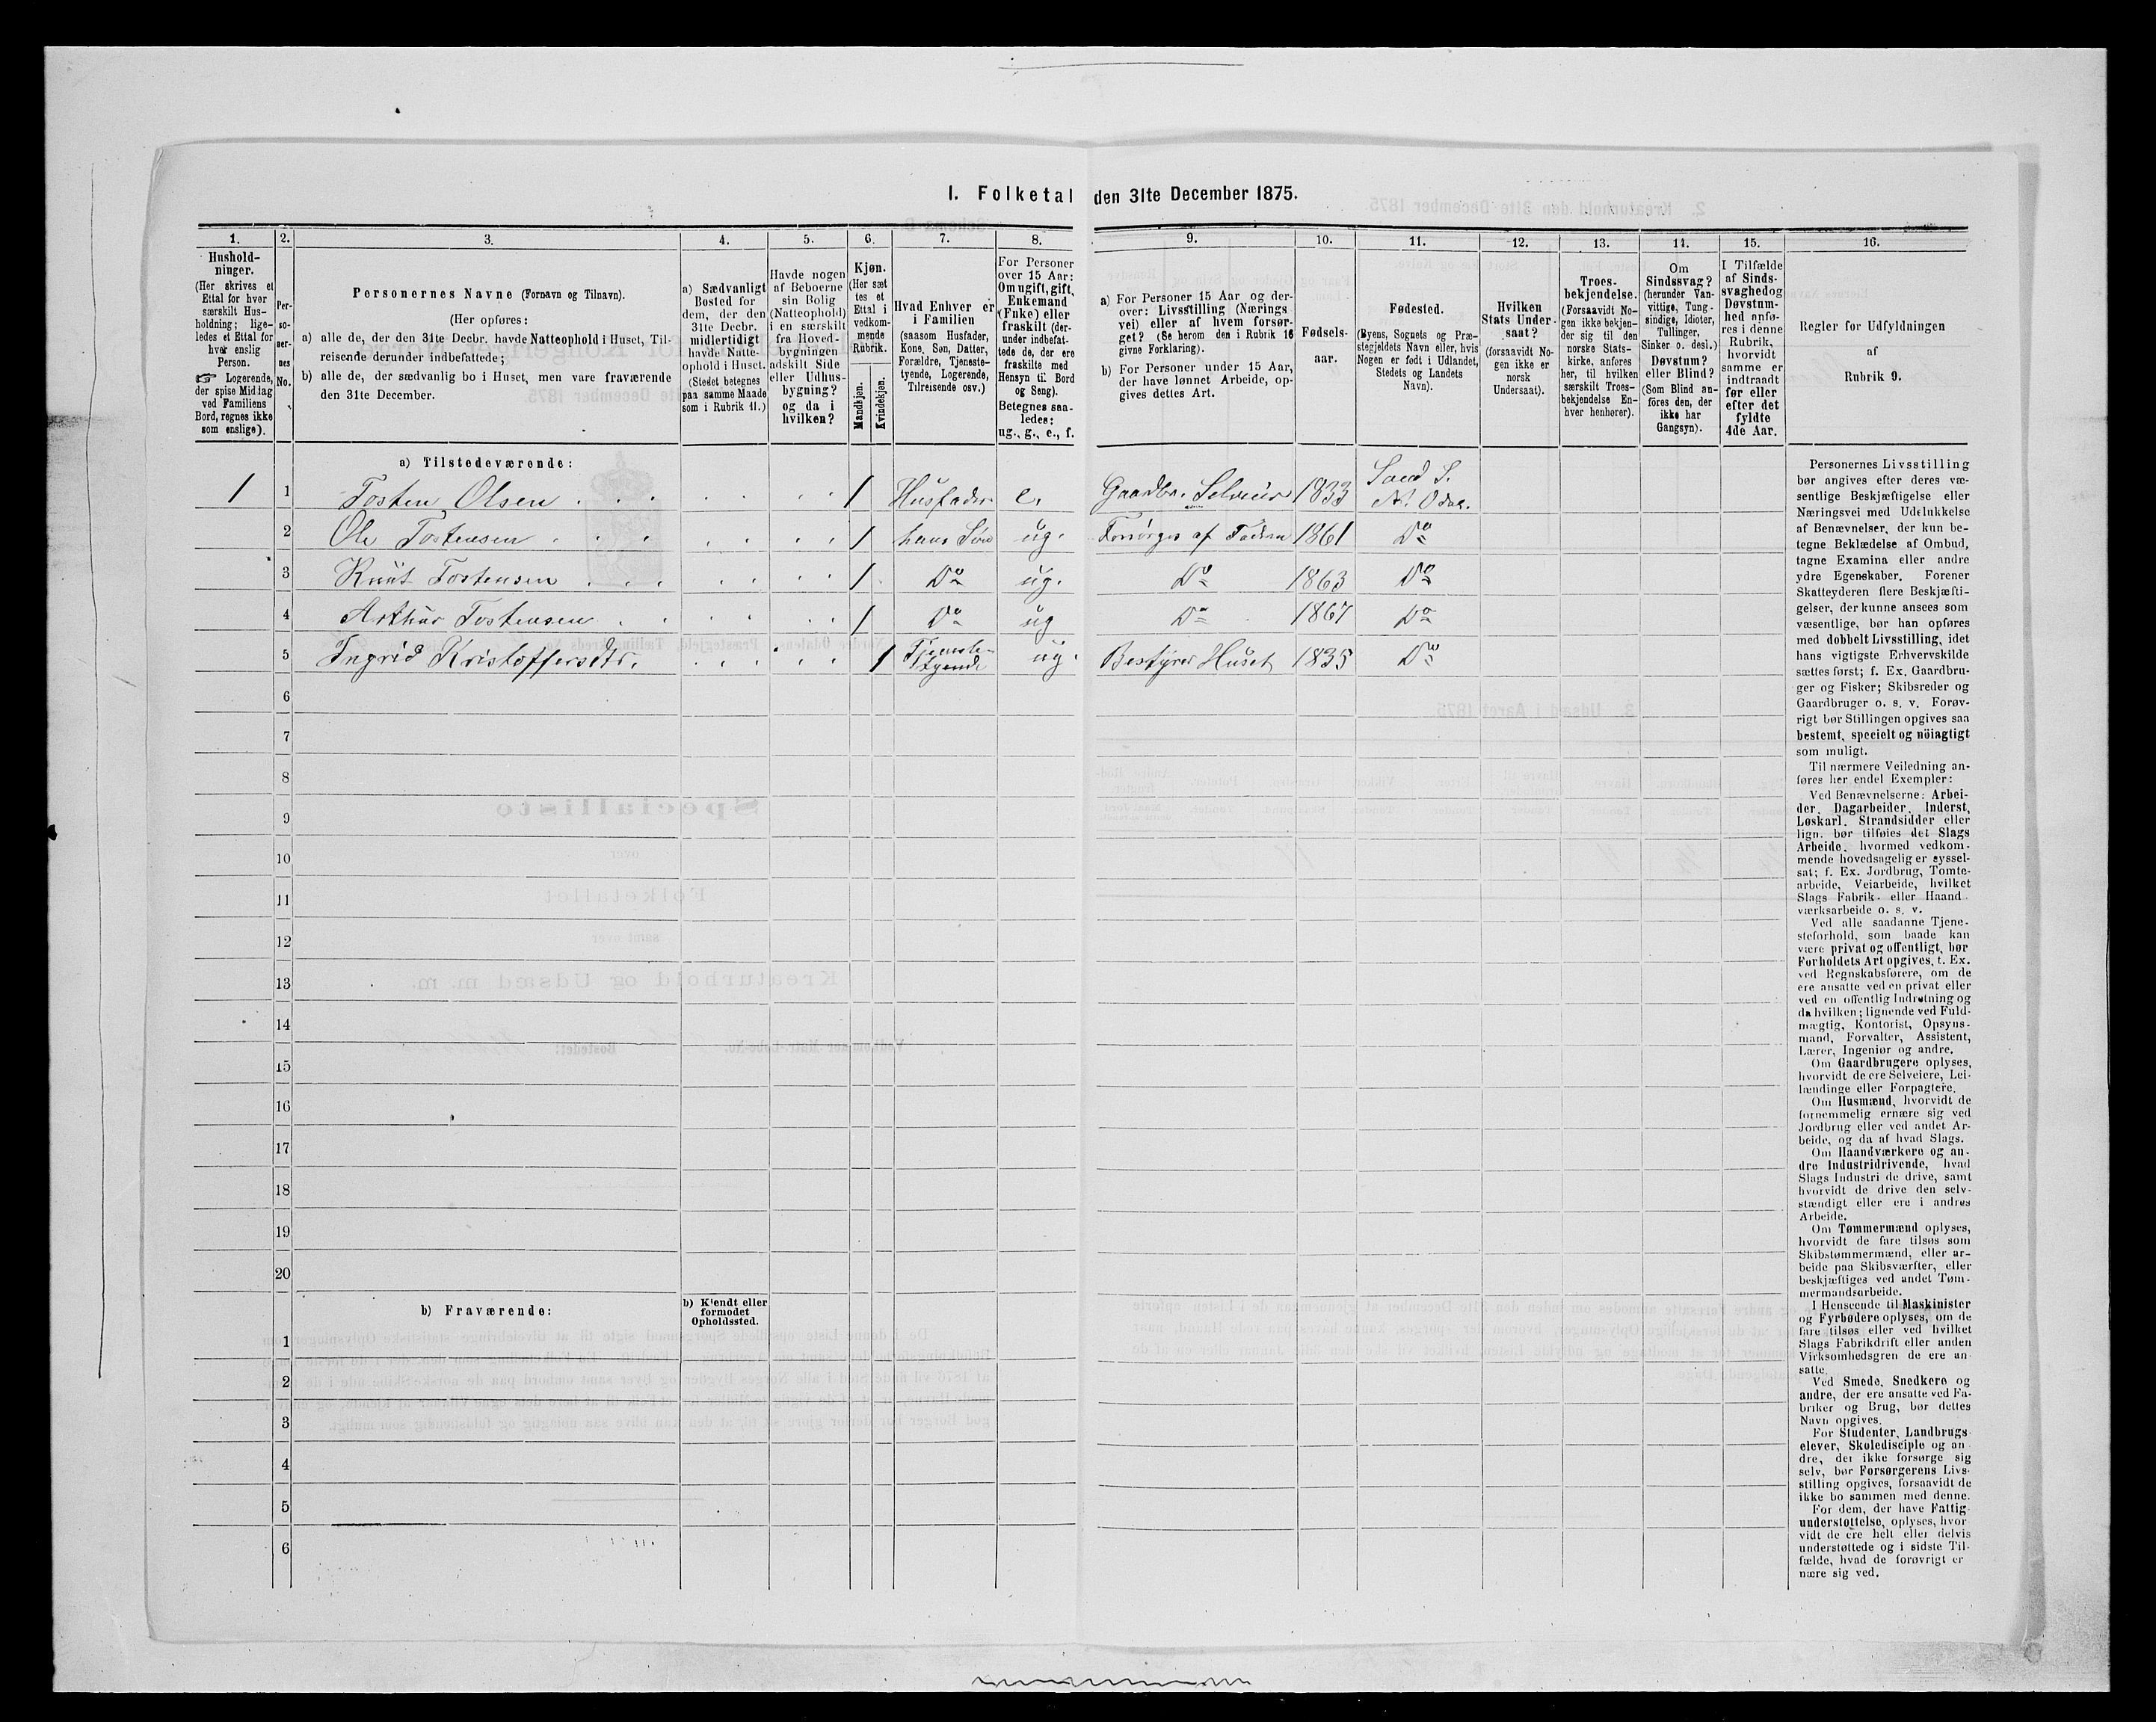 I. Folketal den 31te December 1875.
1.
2.
3.
4.
5.
6.
7.
8.
9.
10.
11.
12.
13.
14.
15.
16.
Hushold-
ninger.
(Her skrives et
Ettal for hver
særskilt Hus-
holdning; lige-
ledes et Ettal for
hver enslig
Person.
☞ Logerende,
der spise Middag
ved Familiens
Bord, regnes ikke
som enslige).
Per-
so-
ner-
nes
No.
Personernes Navne (Fornavn og Tilnavn).
(Her opføres:
a) alle de, der den 31te Decbr. havde Natteophold i Huset, Til-
reisende derunder indbefattede;
b) alle de, der sædvanlig bo i Huset, men vare fraværende
den 31te December.
a) Sædvanligt
Bosted for
dem, der den
31te Decbr.
midlertidigt
havde Natte-
ophold i Huset.
(Stedet betegnes
paa samme Maade
som i Rubrik 11.)
Havde nogen
af Beboerne
sin Bolig
(Natteophold)
i en særskilt
fra Hoved-
bygningen
adskilt Side
eller Udhus-
bygning?
og da i
hvilken?
Kjøn.
(Her sæt
tes et
Ettal i
vedkom-
mende
Rubrik.
Mandkjøn.
Kvindekjøn.
Hvad Enhver er
i Familien
(saasom Husfader,
Kone, Søn, Datter,
Forældre, Tjeneste-
tyende, Logerende,
Tilreisende osv.)
For Personer
over 15 Aar:
Om ugift, gift,
Enkemand
(Enke) eller
fraskilt (der-
under indbefat-
tede de, der ere
fraskilte med
Hensyn til Bord
og Seng).
Betegnes saa-
ledes:
ug., g., e., f.
a) For Personer 15 Aar og der-
over: Livsstilling (Nærings
vei) eller af hvem forsør-
get? (Se herom den i Rubrik 16
givne Forklaring).
b) For Personer under 15 Aar,
der have lønnet Arbeide, op-
gives dettes Art.
Fødsels-
aar.
Fødested.
(Byens, Sognets og Præ-
stegjeldets Navn eller, hvis
Nogen er født i Udlandet,
Stedets og Landets
Navn).
Hvilken
Stats Under-
saat?
(forsaavidt No-
gen ikke er
norsk
Undersaat).
Troes-
bekjendelse.
(Forsaavidt No-
gen ikke bekjen-
der sig til den
norske Stats-
kirke, anføres
her, til hvilken
særskilt Troes-
bekjendelse En-
hver henhører).
Om
Sindssvag?
(herunder Van-
vittige, Tung-
sindige, Idioter,
Tullinger,
Sinker o. desl.)
Døvstum?
eller Blind?
(Som Blind an-
föres den, der
ikke har
Gangsyn).
I Tilfælde
af Sinds-
svaghed og
Døvstum-
hed anfø-
res i denne
Rubrik,
hvorvidt
samme er
indtraadt
før eller
efter det
fyldte
4de Aar.
Regler for Udfyldningen
af
Rubrik 9.
a) Tilstedeværende:
1 1 Tosten Olsen 1 Husfader e. Gaardbr. Selveier 1833 Sand S. N. Odal.
2 Ole Tostensen 1 hans Søn ug. Forsørges af Faderen 1861 Do
3 Knut Tostensen 1 Do ug. Do 1863 Do
4 Arthur Tostensen 1 Do ug Do 1867 Do
5 Ingrid Kristoffersdtr. 1 Tjeneste-tyende ug. Bestyrer Huset 1835 Do
6
7
8
9
10
11
12
13
14
15
16
17
18
19
20
b) Fraværende:
b) Kjendt eller
formodet
Opholdssted.
1
2
3
4
5
6
Personernes Livsstilling
bør angives efter deres væ-
sentlige Beskjæftigelse eller
Næringsvei med Udelukkelse
af Benævnelser, der kun be-
tegne Beklædelse af Ombud,
tagne Examina eller andre
ydre Egenskaber. Forener
Skatteyderen flere Beskjæfti-
gelser, der kunne ansees som
væsentlige, bør han opføres
med dobbelt Livsstilling, idet
hans vigtigste Erhvervskilde
sættes først; f. Ex. Gaardbru-
ger og Fisker; Skibsreder og
Gaardbruger o. s. v. Forøv-
rigt bør Stillingen opgives saa
bestemt, specielt og nöiagtigt
som muligt.
Til nærmere Veiledning an-
føres her endel Exempler:
Ved Benævnelserne: Arbei-
der, Dagarbeider, Inderst,
Løskarl, Strandsidder eller
lign. bør tilføies det Slags
Arbeide, hvormed vedkom-
mende hovedsagelig er syssel-
sat; f. Ex. Jordbrug, Tomte-
arbeide, Veiarbeide, hvilket
Slags Fabrik- eller Haand-
værksarbeide o. s. v.
Ved alle saadanne Tjene-
steforhold, som baade kan
være privat og offentligt, bør
Forholdets Art opgives, t. Ex.
ved Regnskabsførere, om de
ere ansatte ved en privat eller
ved en offentlig Indretning og
da hvilken; lignende ved Fuld-
mægtig, Kontorist, Opsyns-
mand, Forvalter, Assistent,
Lærer, Ingeniør og andre.
Om Gaardbrugere oplyses,
hvorvidt de ere Selveiere, Lei-
lændinge eller Forpagtere.
Om Husmænd, hvorvidt de
fornemmelig ernære sig ved
Jordbrug eller ved andet Ar-
beide, og da af hvad Slags.
Om Haandværkere og an-
dre Industridrivende, hvad
Slags Industri de drive, samt
hvorvidt de drive den selv-
stændigt eller ere i andres
Arbeide.
Om Tømmermænd oplyses,
hvorvidt de fare tilsøs som
Skibstømmermænd, eller ar-
beide paa Skibsværfter, eller
beskjæftiges ved andet Tøm-
mermandsarbeide.
I Henseende til Maskinister
og Fyrbødere oplyses, om de
fare tilsøs eller ved hvilket
Slags Fabrikdrift eller anden
Virksomhedsgren de ere an-
satte.
Ved Smede, Snedkere og
andre, der ere ansatte ved Fa-
briker og Brug, bør dettes
Navn opgives.
For Studenter, Landbrugs-
elever, Skoledisciple og an-
dre, der ikke forsørge sig
selv, bør Forsørgerens Livs-
stilling opgives, forsaavidt de
ikke bo sammen med denne.
For dem, der have Fattig-
understøttelse, oplyses, hvor-
vidt de ere helt eller delvis
understøttede og i sidste Til-
fælde, hvad de forøvrigt er
nære sig ved.